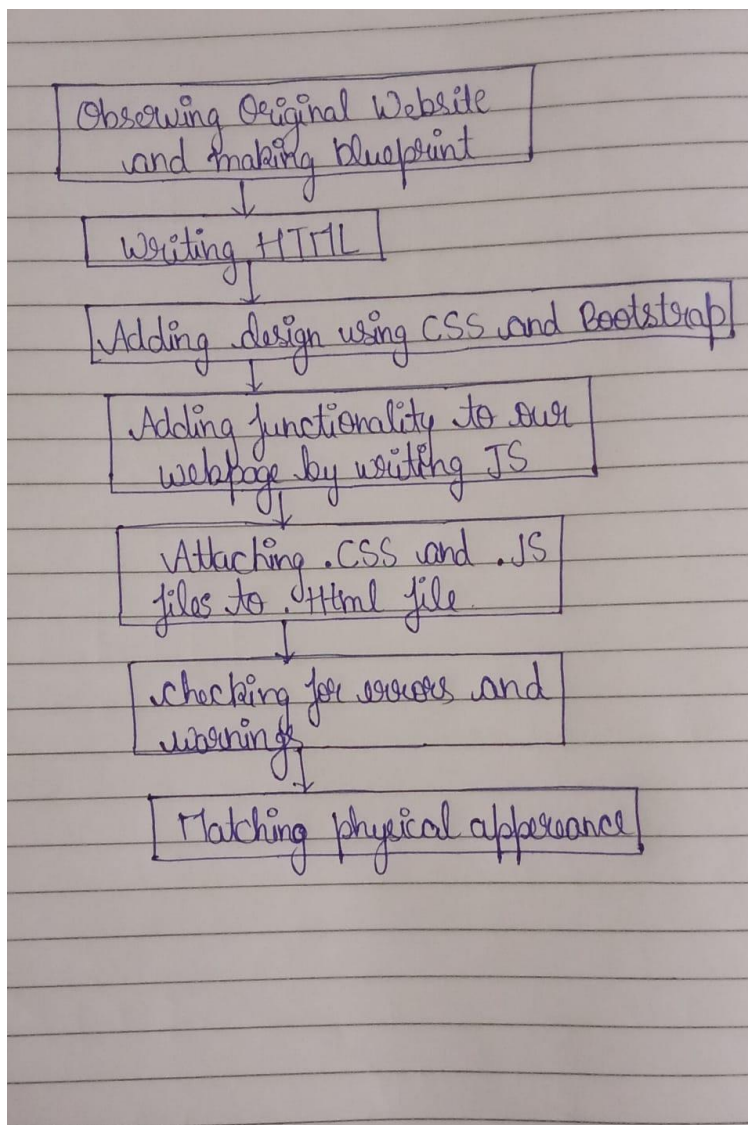 Observing Original Website
and making blueprint
Writing HTML
Adding design using CSS and Bootstrap
Adding functionality to our
webpage by writing JS
Attaching .CSS and .JS
files to .Html file
checking for errors and
warnings
Matching physical apperance